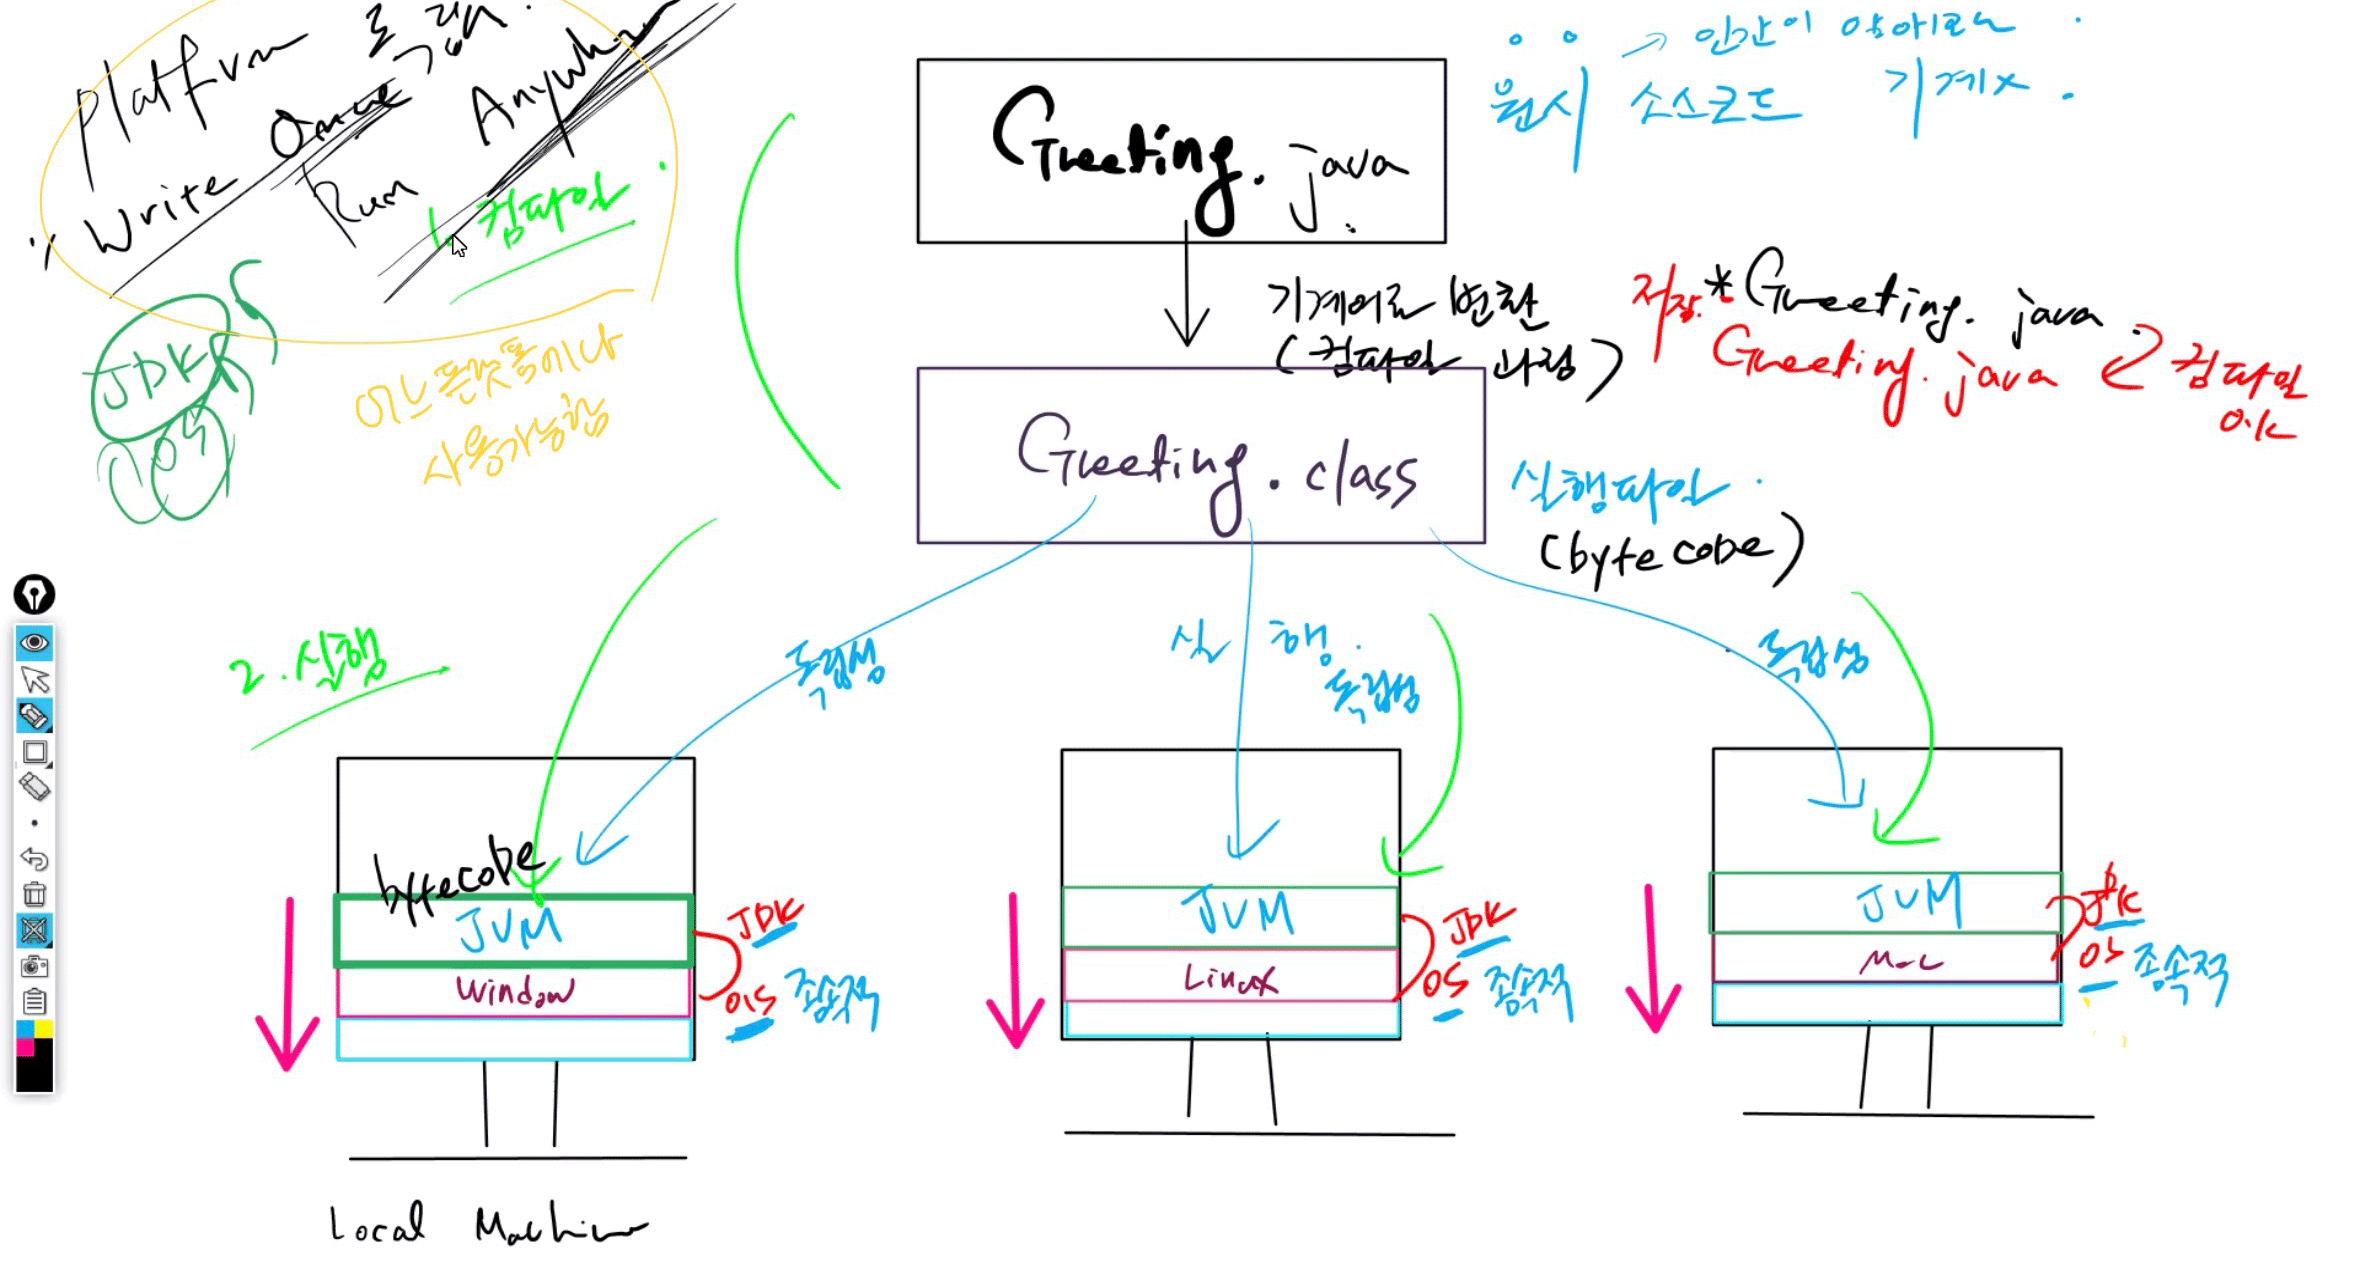 Platform 독립.
Write Once
Run Anywhere
컴파일.
JDK
OS
어느 플랫폼이나
사용가능함
Greeting.java
→ 인간이 알아보는.
원시 소스코드 기계x.
기계어로 변환
(컴파일 과정)
저장. *Greeting.java
Greeting.java 컴파일
O.K
Greeting.class
실행파일.
(bytecode)
2. 실행
독립성
실행.
독립성
독립성
bytecode
JVM
Window
JDK
OS 종속적
JVM
Linux
JDK
OS 종속적
JVM
Mac
JDK
OS 종속적
Local Machine